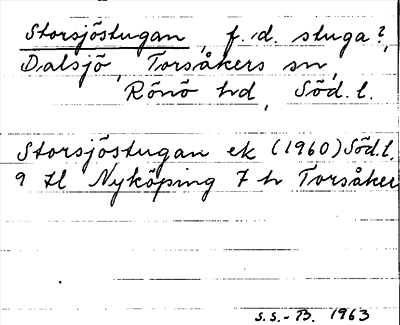 Storsjöstugan, f. d. stuga?,
Dalsjö, Torsåkers sn,
Rönö hd, Söd. l.
Storsjöstugan ek (1960) Söd. l.
9 Hl Nyköping 7 h Torsåker
S.S.-B. 1963